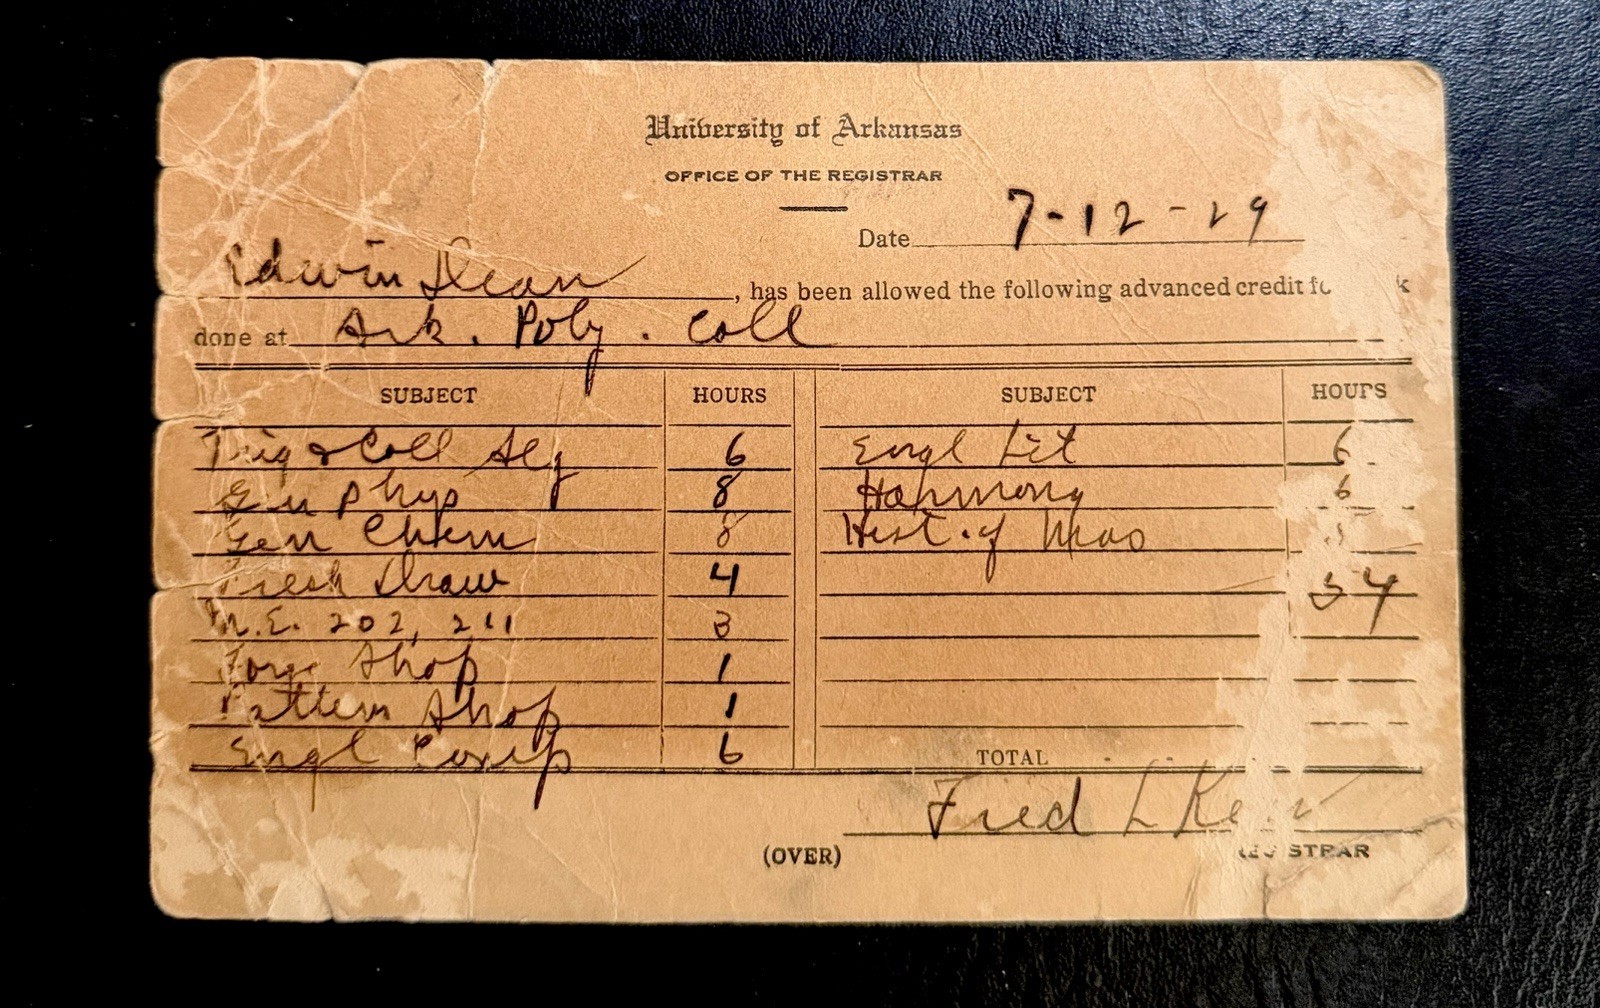 University of Arkansas
OFFICE OF THE REGISTRAR
Date 7-12-29
Edwin Dean, has been allowed the following advanced credit
done at Ark. Poly. Coll
SUBJECT HOURS SUBJECT HOURS
Trig & Coll Alg 6 Engl Lit 6
Gen Phys 8 Harmony 6
Gen Chem 8 Hist. of Mus
Fresh Draw 4 54
M.E. 202, 211 3
Forge Shop 1
Pattern Shop 1
Engl Comp 6 TOTAL
Fred L Kerr
(OVER) REGISTRAR